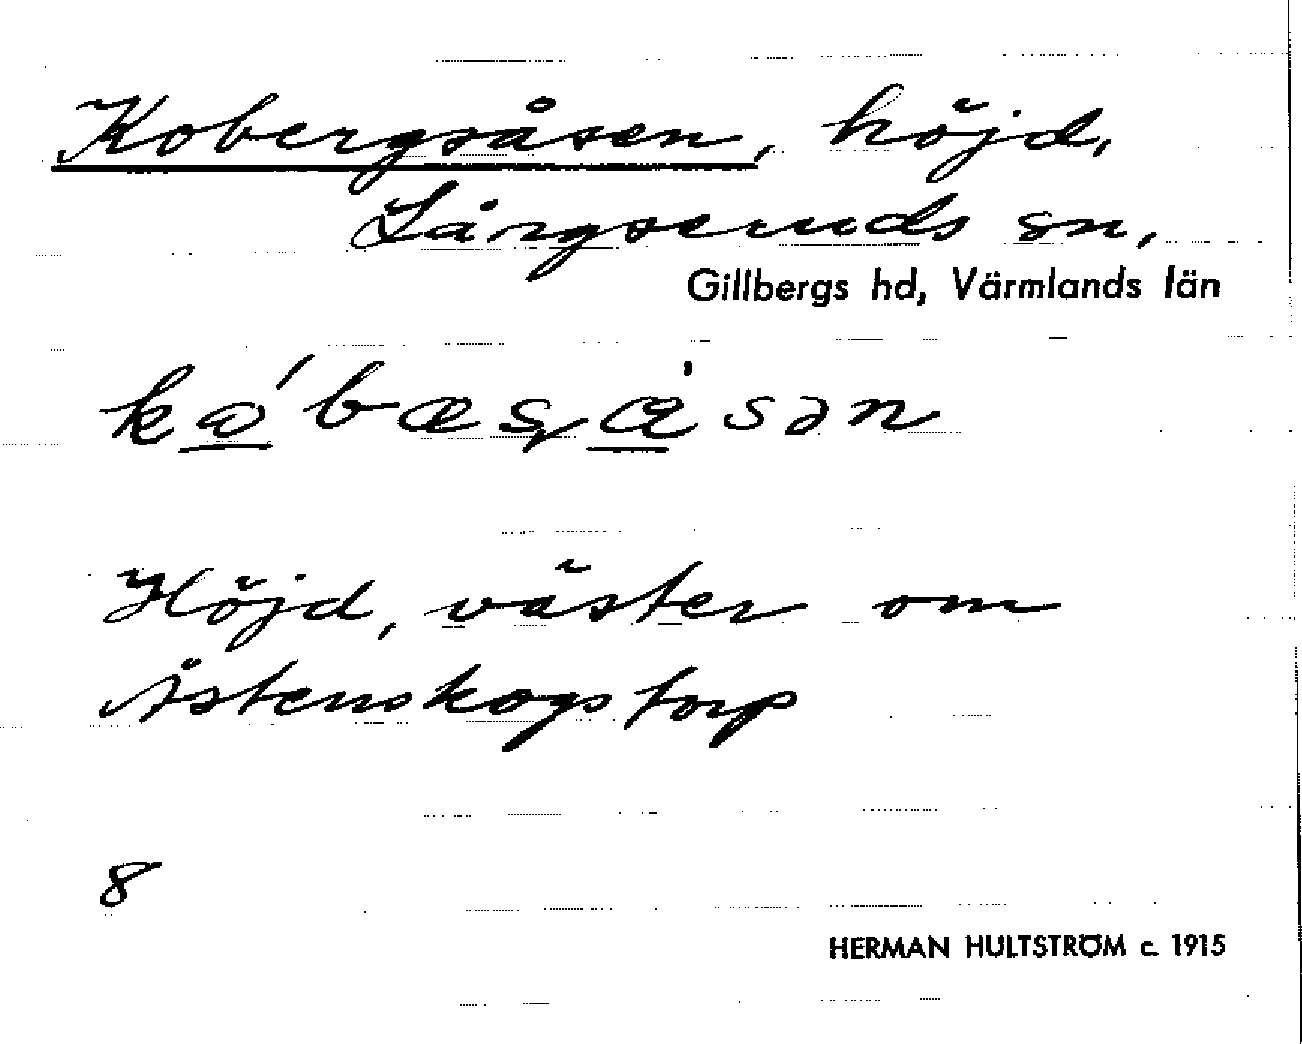 Kobergsåsen, höjd,
Långseruds sn,
Gillbergs hd, Värmlands län
Höjd, väster om
Åstenskogstorp
8
HERMAN HULTSTRÖM c. 1915